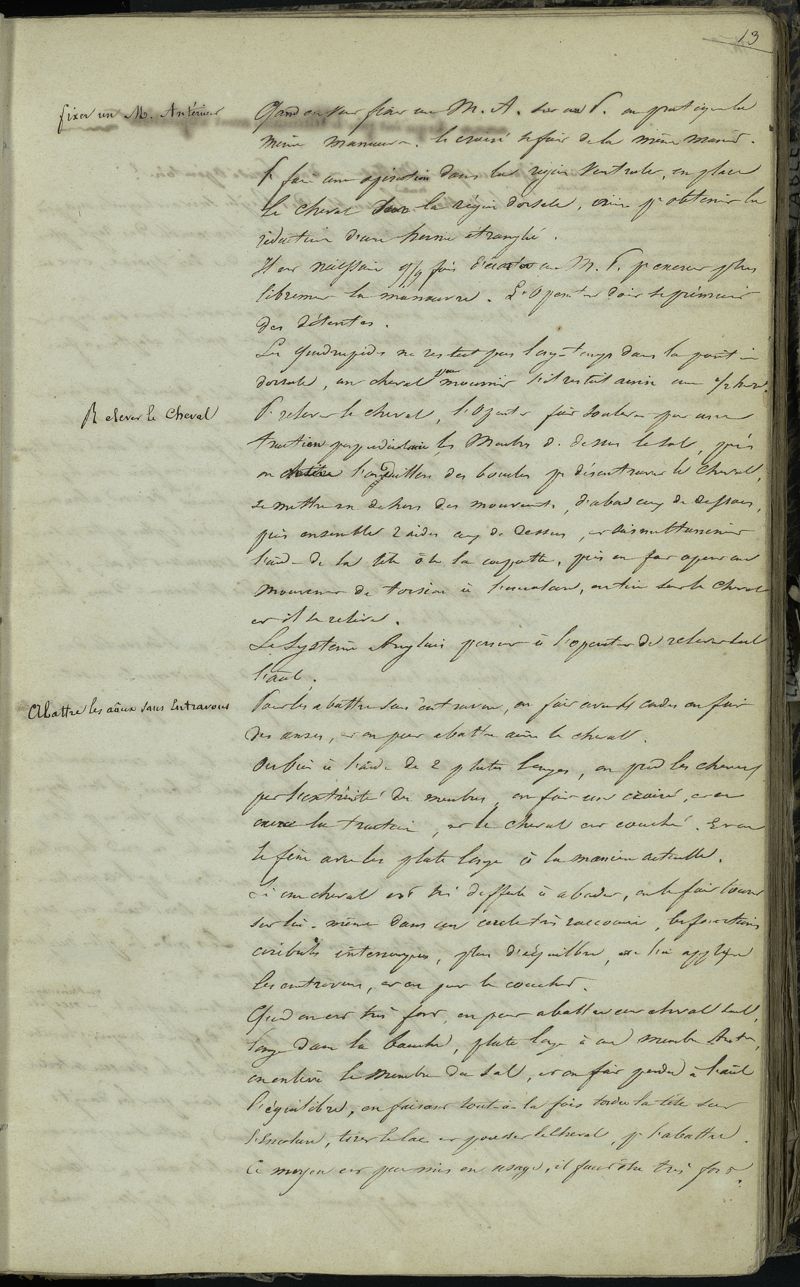 13
fixer un M. Antérieur
Quand on veut fixer un M. A. sur un P. on pratique la
même manœuvre. le croisé se fait de la même manière.
P. faire une opération dans la région Ventrale, on place
le cheval dans la région dorsale, ainsi pr obtenir la
réduction d'une hernie étranglée.
Il est nécessaire q/q fois d' un M. P. pr exercer plus
librement la manœuvre. L'Opérateur doit se prémunir
des détentes.
Les quadrupèdes ne restent pas long-temps dans la position
dorsale, un cheval pour mourir s'il restait ainsi une 1/2 heure.
Relever le Cheval
P. relever le cheval, l'Opérateur fait soulever par une
traction perpendiculaire les Membres de dessus le sol, puis
on l'ardillon des boucles pr désentraver le cheval,
se mettre en dehors des mouvements, d'abord ceux de dessous,
puis ensemble 2 aides ceux de dessus, et simultanément
l'aide de la tête ôte la capote, puis on fait opérer un
mouvement de torsion à l'encolure, on tire sur le cheval
et il se relève.
Le Système Anglais permet à l'opérateur de relever seul
l'aâl.
Abattre les aâux sans Entravons
Pour les abattre sans entravons, on fait avec des cordes on fait
des anses, et on peut abattre ainsi le cheval.
Ou bien à l'aide de 2 plates longes, on prend les chevaux
par l'extrémité des membres, on fait un croisé, et on
exerce la traction, et le cheval est couché. Et on
le fixe avec les plate longe à la manière actuelle.
Si un cheval est très difficile à aborder, on le fait tourner
sur lui-même dans un cercle très raccourci, les fonctions
cérébrales interrompues, plus d'équilibre, on lui applique
les entravons, et on peut le coucher.
Quand on est très fort, on peut abattre un cheval seul,
longe dans la bouche, plate longe à un membre Antr,
on enlève le membre du sol, et on fait perdre à l'aâl
l'équilibre, en faisant tout-à-la fois tordre la tête sur
l'Encolure, tirer le lac et pousser le cheval, pr l'abattre.
Ce moyen est peu mis en usage, il faut être très fort.